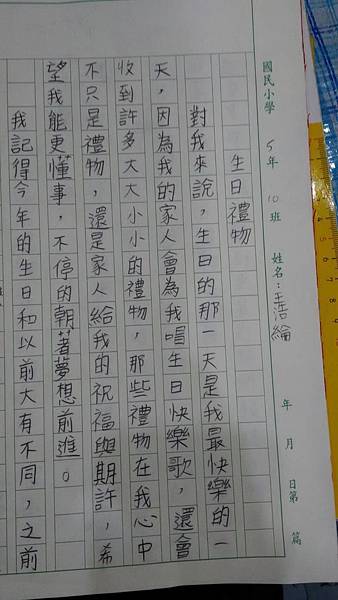 國民小學 5年 10班 姓名：王浩綸 年 月 日第 篇
生日禮物
對我來說，生日的那一天是我最快樂的一
天，因為我的家人會為我唱生日快樂歌，還會
收到許多大大小小的禮物，那些禮物在我心中
不只是禮物，還是家人給我的祝福與期許，希
望我能更懂事，不停的朝著夢想前進。
我記得今年的生日和以前大有不同，之前